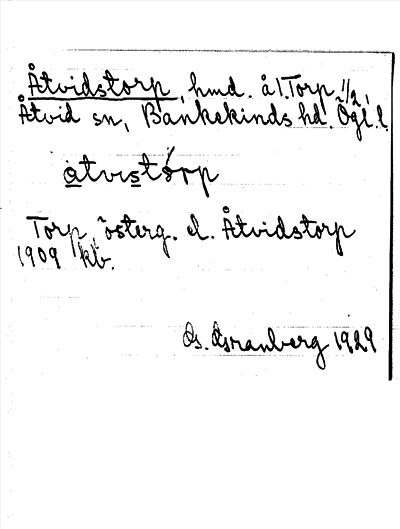 Åtvidstorp, hmd. å 1. Torp 1/2,
Åtvid sn, Bankekinds hd. Ögl. l.
åtvistórp
Torp, österg. el. Åtvidstorp
1909 kb.
Granberg 1929